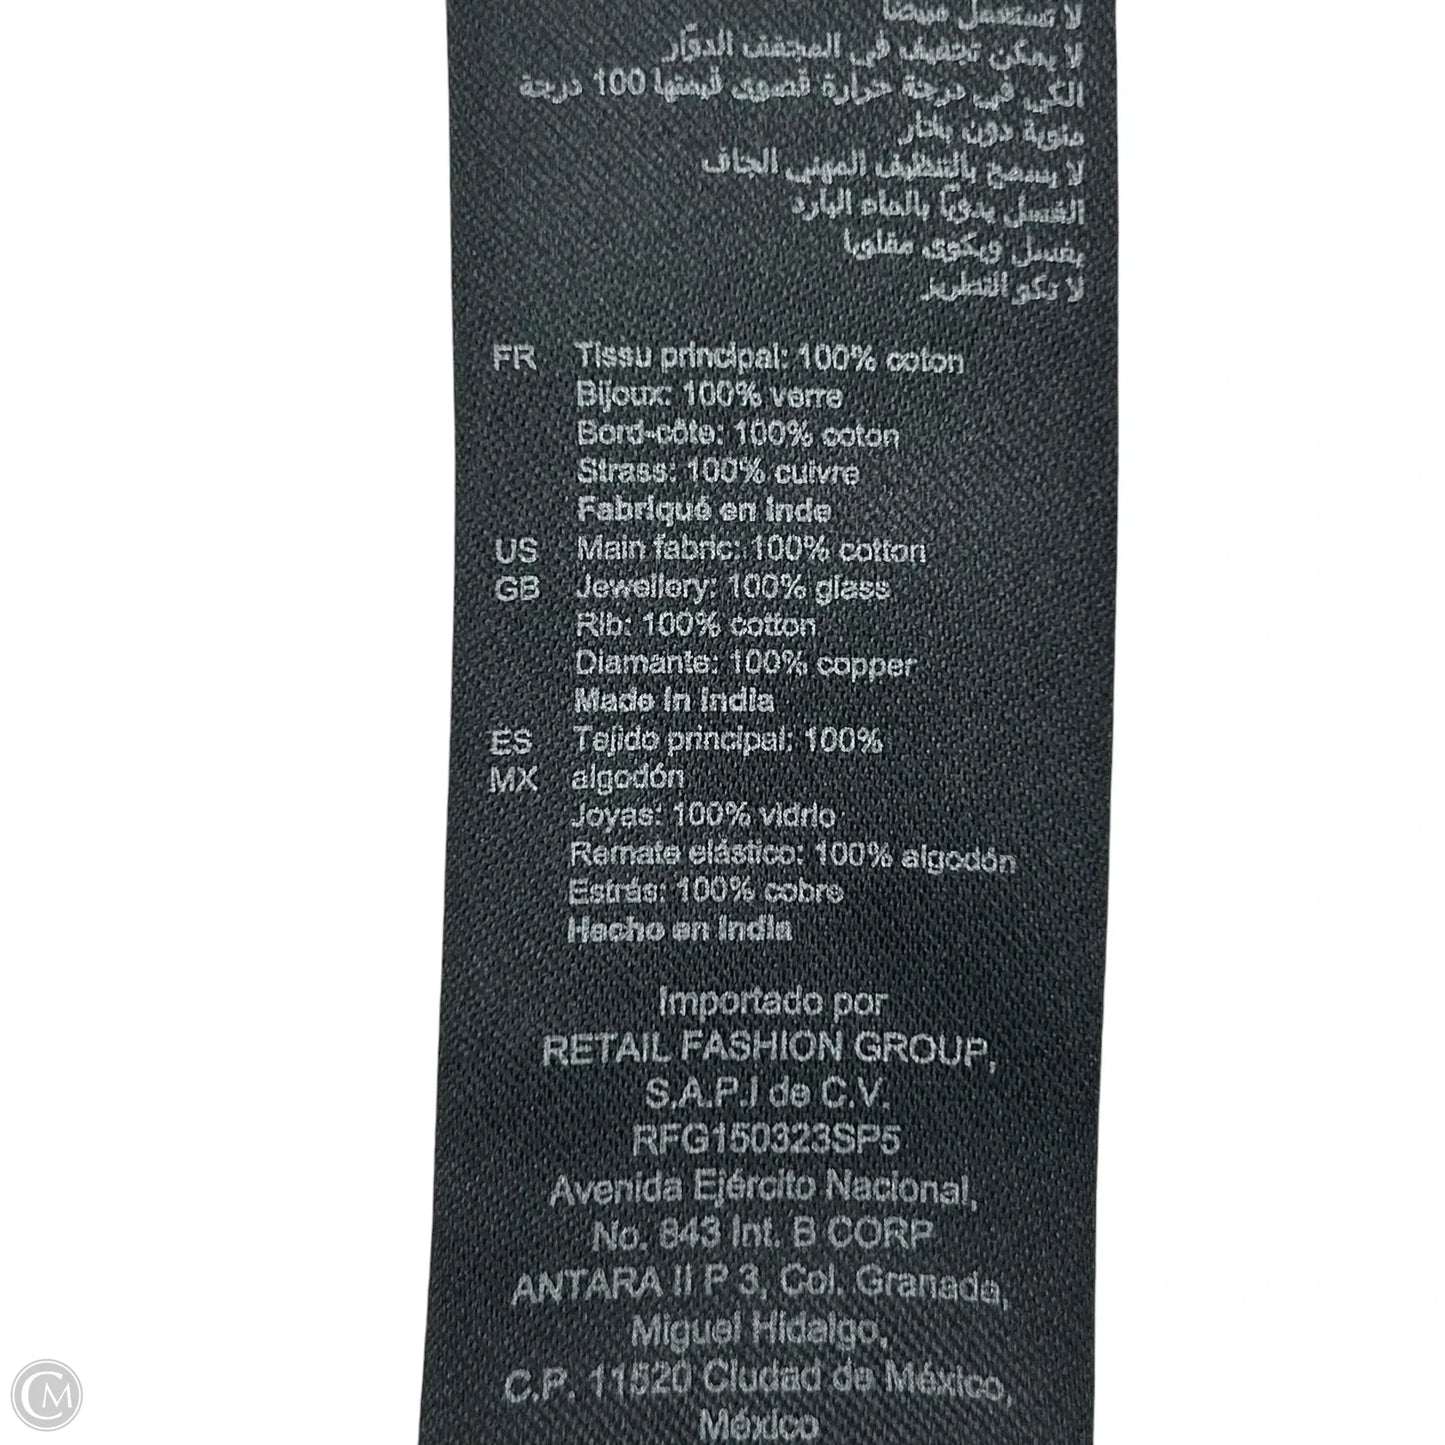 لا تستعمل مبيضا
لا يمكن تجفيف في المجفف الدوّار
الكي في درجة حرارة قصوى قيمتها 100 درجة
مئوية دون بخار
لا يسمح بالتنظيف المهني الجاف
الغسل يدويًا بالماء البارد
يغسل ويكوى مقلوبا
لا تكو التطريز
FR Tissu principal: 100% coton
Bijoux: 100% verre
Bord-côte: 100% coton
Strass: 100% cuivre
Fabriqué en Inde
US Main fabric: 100% cotton
GB Jewellery: 100% glass
Rib: 100% cotton
Diamante: 100% copper
Made in India
ES Tejido principal: 100%
MX algodón
Joyas: 100% vidrio
Remate elástico: 100% algodón
Estrás: 100% cobre
Hecho en India
Importado por
RETAIL FASHION GROUP,
S.A.P.I de C.V.
RFG150323SP5
Avenida Ejército Nacional,
No. 843 Int. B CORP
ANTARA II P 3, Col. Granada,
Miguel Hidalgo,
C.P. 11520 Ciudad de México,
México
CM